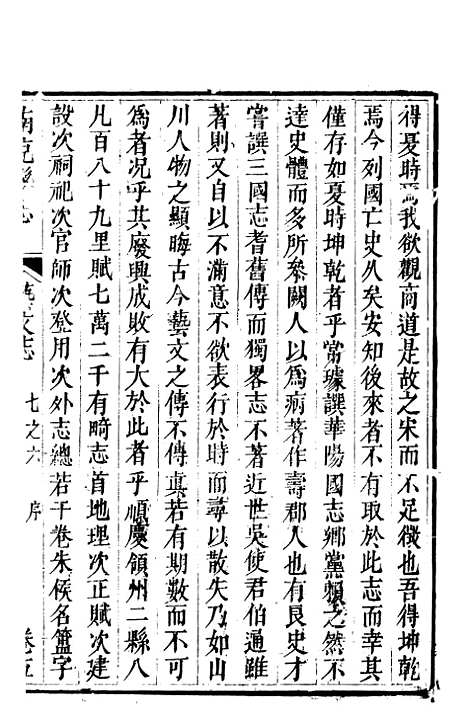 得夏時焉我欲觀商道是故之宋而不足徵也吾得坤乾
焉今列國亡史久矣安知後來者不有取於此志而幸其
僅存如夏時坤乾者乎常璩譔華陽國志鄉黨賴之然不
達史體而多所參闕人以為病著作壽郡人也有良史才
嘗譔三國志耆舊傳而獨畧志不著近世吳使君伯通雖
著則又自以不滿意不欲表行於時而尋以散失乃如山
川人物之顯晦古今藝文之傳不傳眞若有期數而不可
為者況乎其廢興成敗有大於此者乎順慶領州二縣八
凡百八十九里賦七萬二千有畸志首地理次正賦次建
設次祠祀次官師次登用次外志總若干卷朱侯名簠字
南充縣志 藝文志 七之六 序 卷五